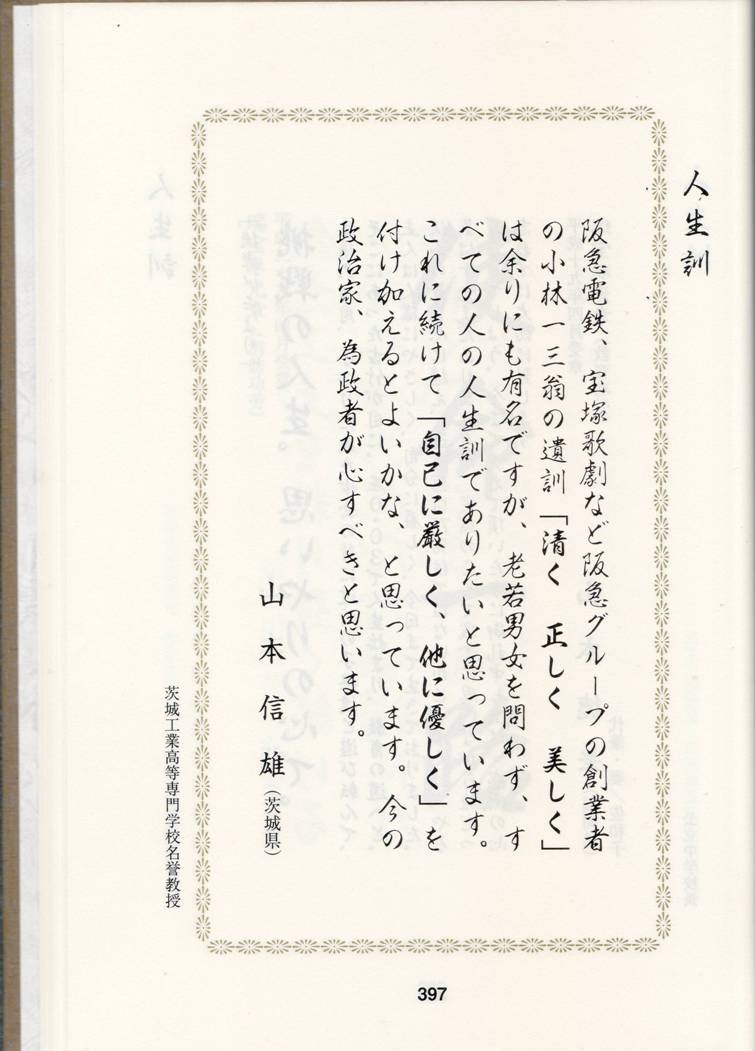 人生訓
阪急電鉄、宝塚歌劇など阪急グループの創業者
の小林一三翁の遺訓「清く　正しく　美しく」
は余りにも有名ですが、老若男女を問わず、す
べての人の人生訓でありたいと思っています。
これに続けて「自己に厳しく、他に優しく」を
付け加えるとよいかな、と思っています。今の
政治家、為政者が心すべきと思います。
山本信雄（茨城県）
茨城工業高等専門学校名誉教授
397